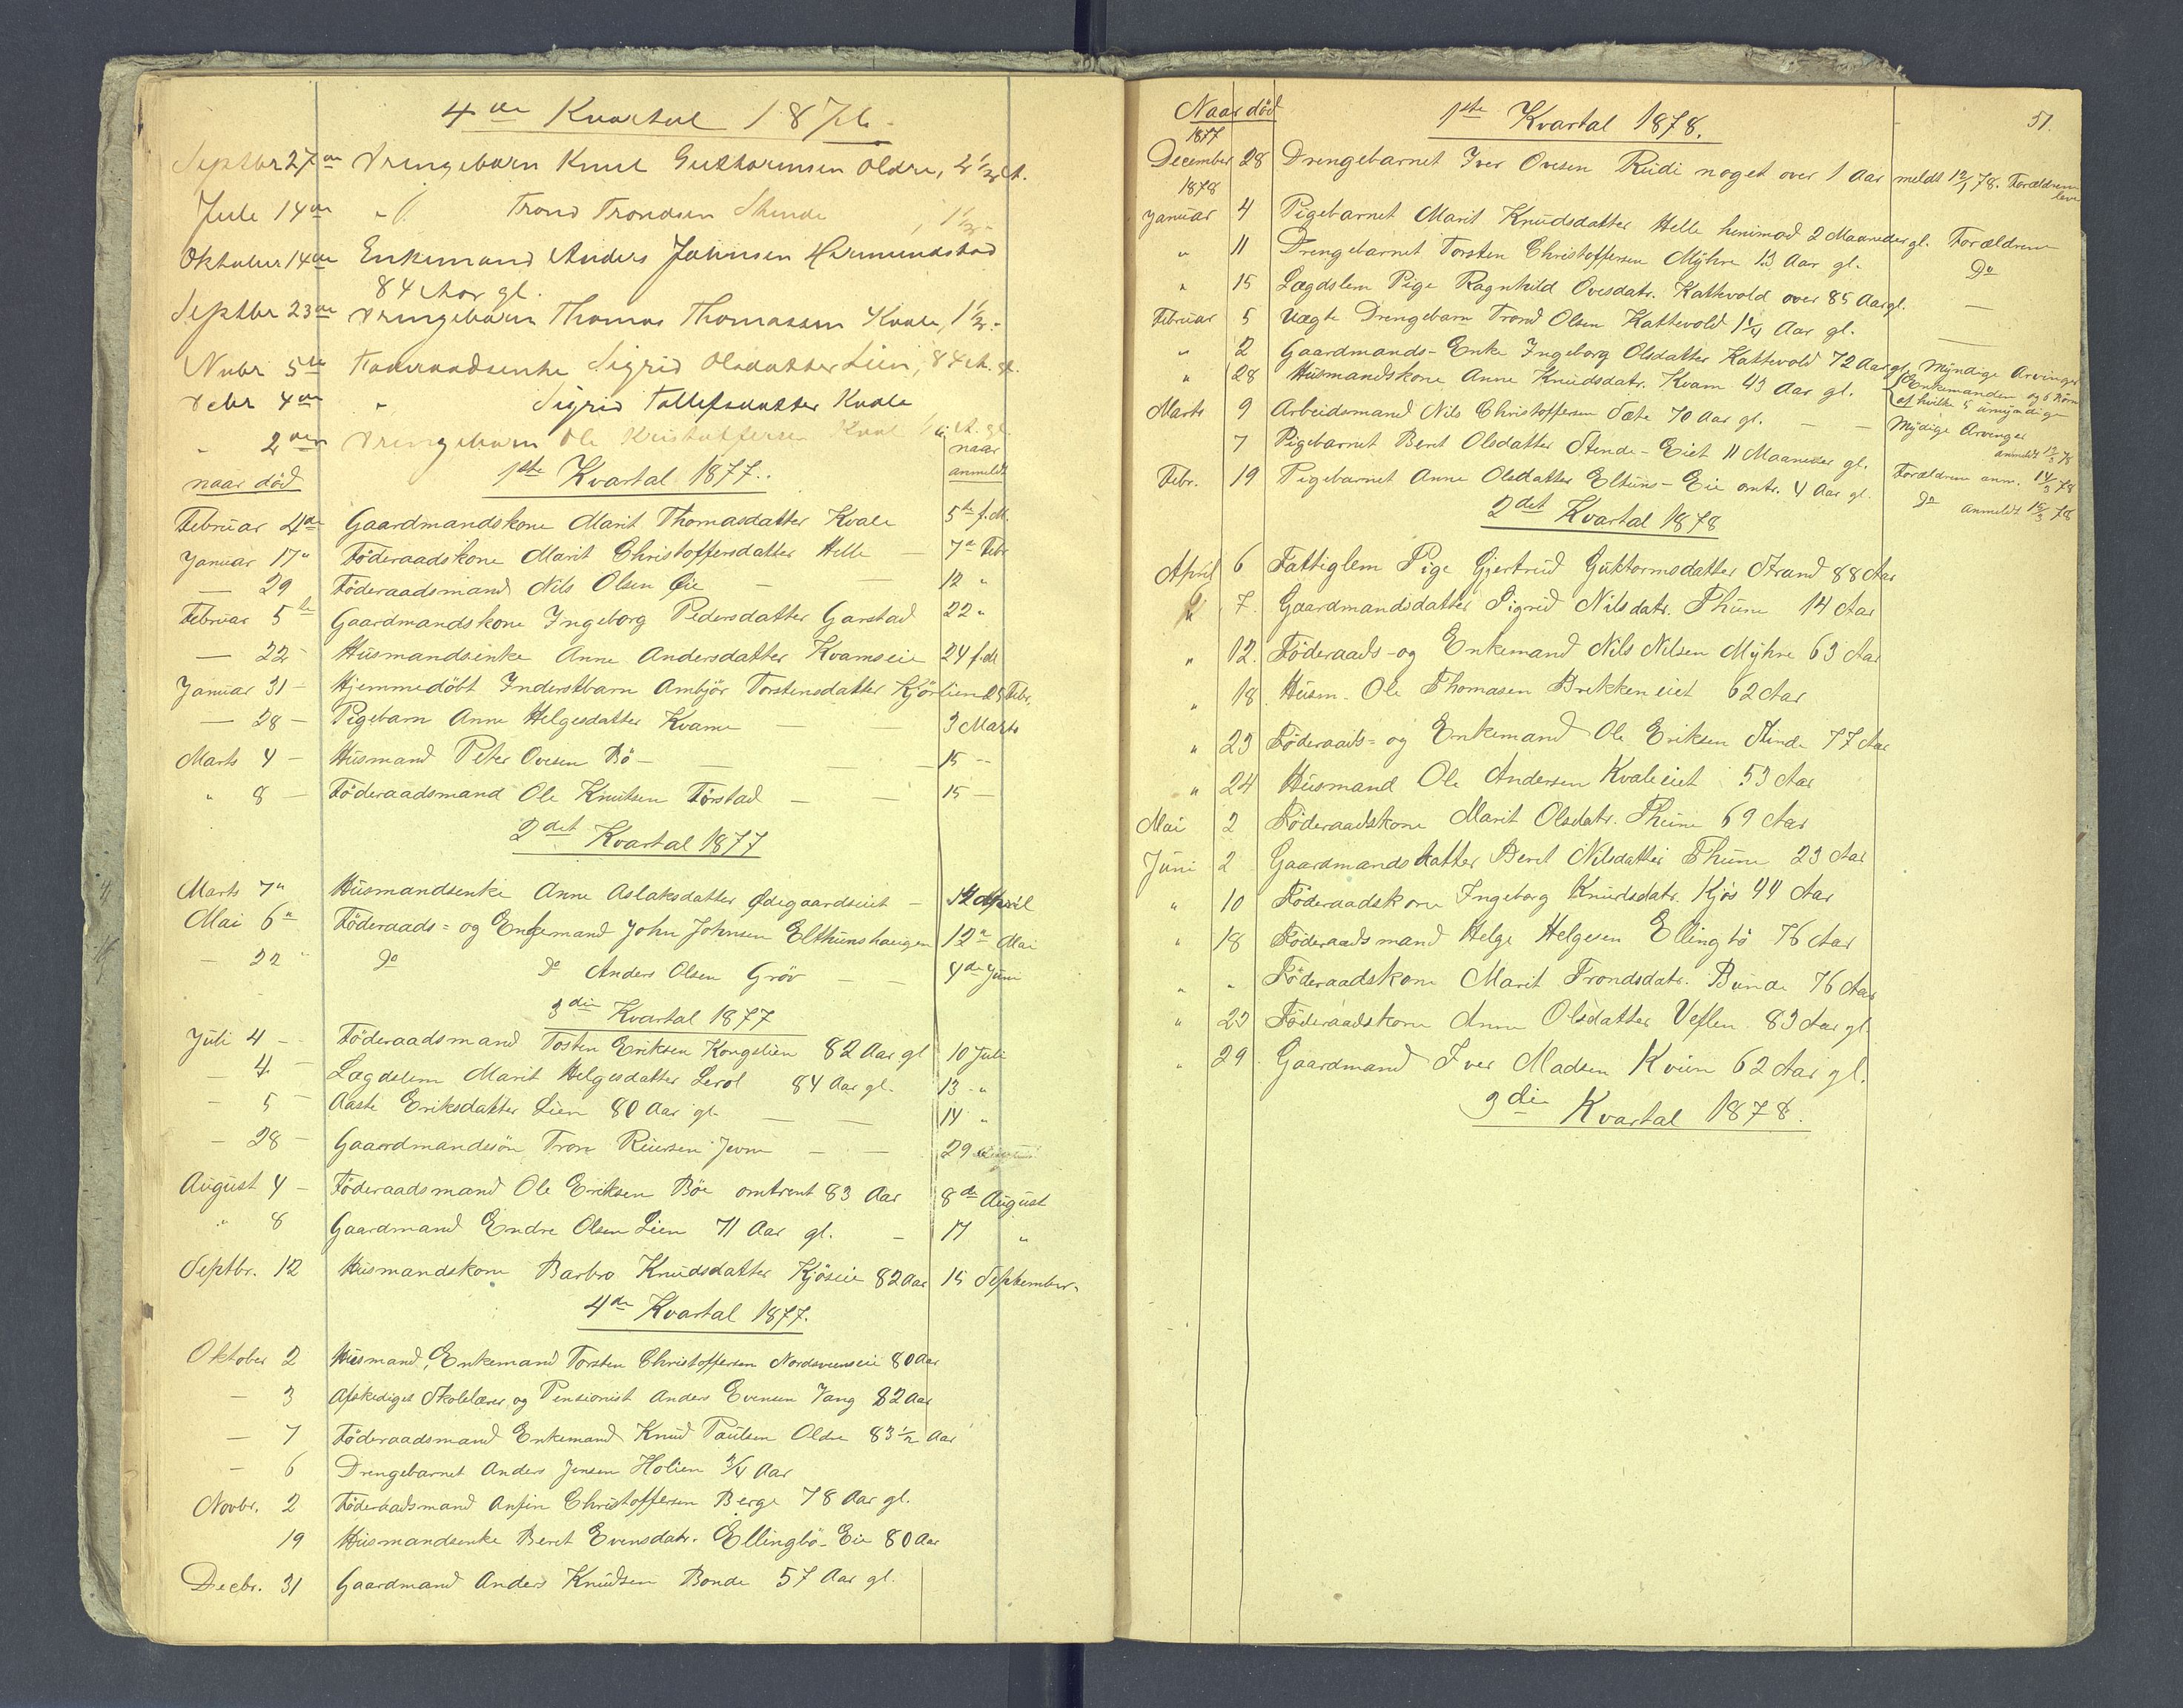 4de Kvartal 1876.
Septbr 27de Drengebarn Knut Guttormsen Oldre, 2 1/2 A.
Jule 14de " Trond Trondsen Skinde, 1 1/2 -
Oktober 14de Enkemand Anders Johnsen Hermundstad
84 Aar gl.
Septbr 23de Drengebarn Thomas Thomassen Kvale, 1 1/2 -
Nvbr 5te Føderaadsenke Sigrid Olsdatter Lien, 84 A. gl.
Debr 4de " Sigrid Tollefsdatter Kvale
" 2den Drengebarn Ole Kristoffersen Kval
naar død 1ste Kvartal 1877. naar anmeldt
Februar 4de Gaardmandskone Marit Thomasdatter Kvale 5te f. M.
Januar 17" Föderaadskone Marit Christoffersdatter Helle — 7de Febr
— 29 Föderaadsmand Nils Olsen Öie — — 12 "
Februar 5te Gaardmandskone Ingeborg Pedersdatter Garstad 22 "
— 22 - Husmandsenke Anne Andersdatter Kvamseie 24 f. M
Januar 31 - Hjemmedöbt Inderstbarn Ambjör Torstensdatter Kjörlien 25 Febr.
— 28 - Pigebarn Anne Helgesdatter Kvame — — 3 Marts
Marts 4 - Husmand Peter Ovesen Bö — — — 15 -
" 8 - Föderaadsmand Ole Knutsen Törstad — — 15 —
2det Kvartal 1877
Marts 7" Husmandsenke Anne Aslaksdatter Ödegaardseiet — 12 April
Mai 6" Föderaads= og Enkemand John Johnsen Elthunshaugen 12te Mai
— 22 " Do Do Anders Olsen Gröv — — 4de Juni
3die Kvartal 1877
Juli 4 - Föderaadsmand Tosten Eriksen Kongslien 82 Aar gl 10 Juli
— 4 - Lægdslem Marit Helgesdatter Lerol 84 Aar gl. 13 - "
— 5 - Aaste Eriksdatter Lien 80 Aar gl. — — 14 "
— 28 - Gaardmandssön Tron Jevne — — 29
August 4 - Föderaadsmand Ole Eriksen Böe omtrent 83 Aar 8de August
" 8 Gaardmand Endre Olsen Lien 71 Aar gl. — 17 "
Septbr. 12 Husmandskone Barbro Knudsdatter Kjöseie 82 Aar 15 September
4de Kvartal 1877.
Oktober 2 Husmand, Enkemand Torsten Christoffersen Nordsveenseie 80 Aar
— 3 Afskediget Skolelærer og Pensionist Anders Evensen Vang 82 Aar
— 7 Föderaadsmand Enkemand Knud Paulsen Oldre 83 1/2 Aar
— 6 Drengebarnet Anders Jensen Holien 3/4 Aar
Novbr. 2 Föderaadsmand Anfin Christoffersen Berge 78 Aar gl.
19 Husmandsenke Beret Evensdatr. Ellingbö-Eie 80 Aar
Decbr. 31 Gaardmand Anders Knudsen Bonde 57 Aar gl.
51.
Naar död 1ste Kvartal 1878.
1877
December 28 Drengebarnet Iver Ovesen Rudi noget over 1 Aar meldt 12/1 78. Forældrene leve
1878
Januar 4 Pigebarnet Marit Knudsdatter Helle henimod 2 Maaneder gl. Forældrene
" 11 Drengebarnet Torsten Christoffersen Myhre 13 Aar gl. Do
" 15 Lægdslem Pige Ragnhild Ovesdatr. Kattevold over 85 Aar gl. —
Februar 5 Uægte Drengebarn Trond Olsen Kattevold 1 1/4 Aar gl. —
" 2 Gaardmands-Enke Ingeborg Olsdatter Kattevold 72 Aar gl. Myndige Arvinger
" 28 Husmandskone Anne Knudsdatr. Kvam 43 Aar gl. Enkemanden og 6 Börn af hvilke 5 umyndige
Marts 9 Arbeidsmand Nils Christoffersen Sæte 70 Aar gl. — — Mydige Arvinger
7 Pigebarnet Beret Olsdatter Stende-Eiet 11 Maaneder gl. anmeldt 12/3 78
Febr. 19 Pigebarnet Anne Olsdatter Eltuns-Eie omtr. 4 Aar gl. Forældrene anm. 14/3 78
Do anmeldt 15/3 78
2det Kvartal 1878
April 6 Fattiglem Pige Gjertrud Guttormsdatter Strand 88 Aar
" 7. Gaardmandsdatter Sigrid Nilsdatr. Thune 14 Aar
" 12. Föderaads- og Enkemand Nils Nilsen Myhre 63 Aar
" 18. Husm. Ole Thomasen Brekken eiet 62 Aar
" 23 Föderaads= og Enkemand Ole Eriksen Stinde 77 Aar
" 24 Husmand Ole Andersen Kvaleeiet 53 Aar
Mai 2 Föderaadskone Marit Olsdatr. Thune 69 Aar
Juni 2 Gaardmandsdatter Beret Nilsdatter Thune 23 Aar
" 10 Föderaadskone Ingeborg Knudsdatr. Kjös 44 Aar
" 18 Föderaadsmand Helge Helgesen Ellingbö 76 Aar
" " Föderaadskone Marit Trondsdatr. Bunde 76 Aar
" 23 Föderaadskone Anne Olsdatter Veflen 83 Aar gl.
" 29. Gaardmand Iver Madsen Kvien 62 Aar gl.
3die Kvartal 1878.